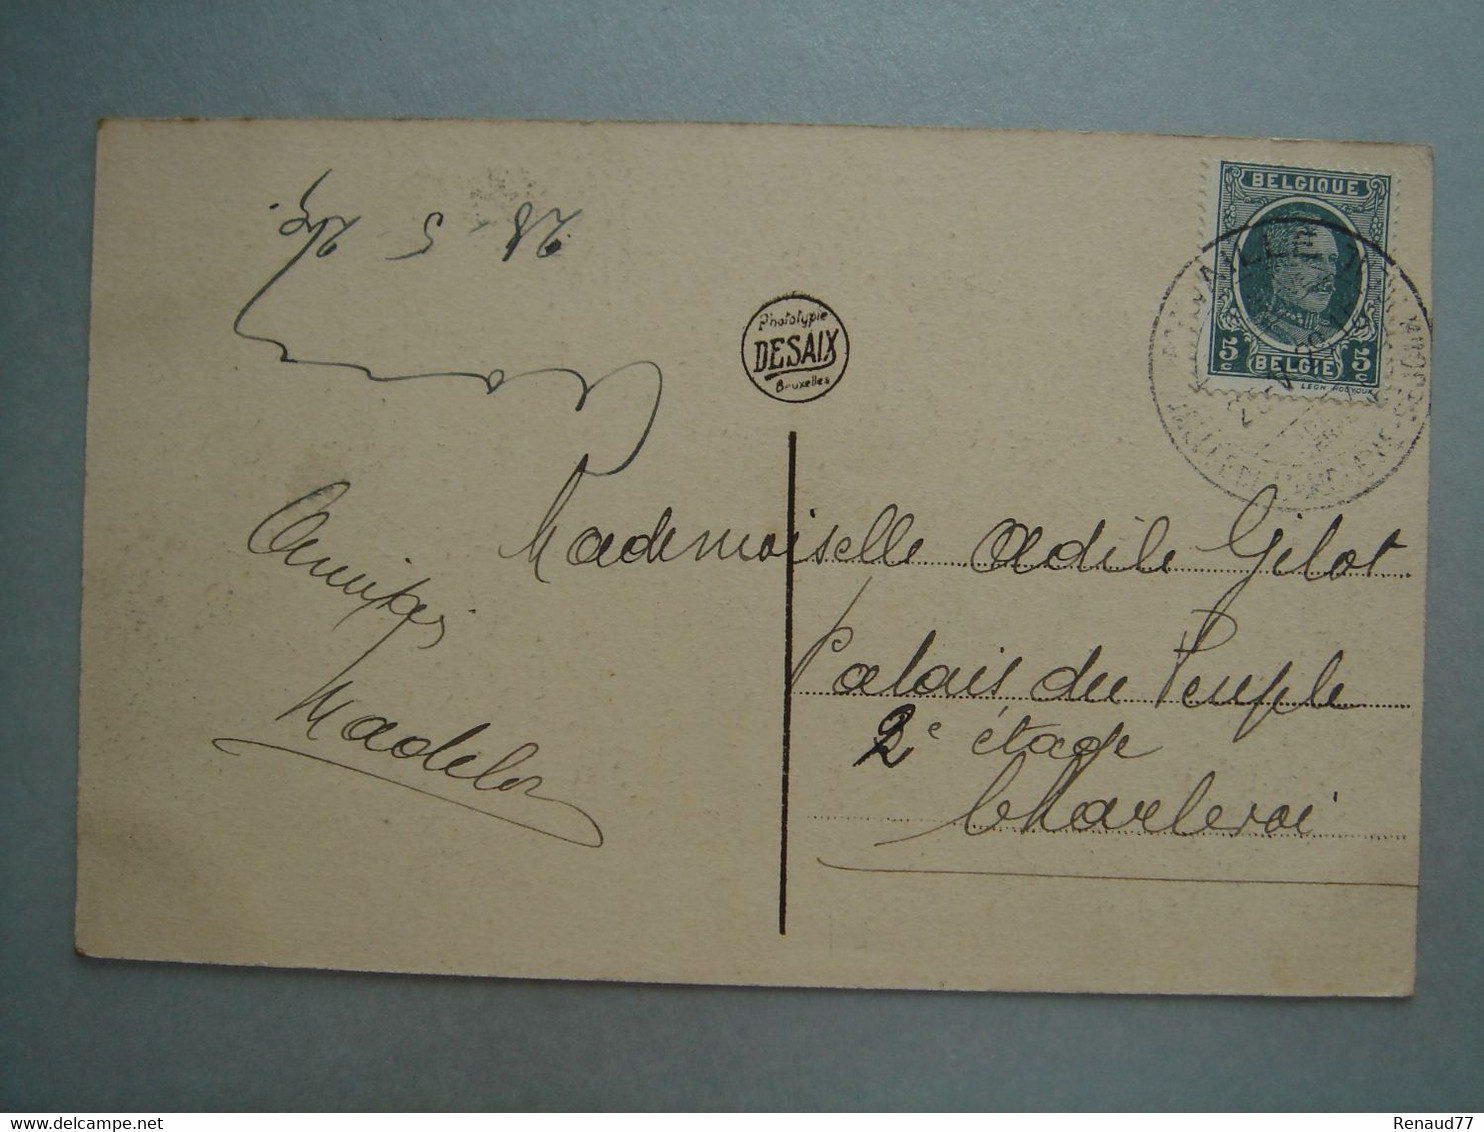 28 - 5 - 29.
Léon
Amitiés
Madelon
Phototypie
DESAIX
Bruxelles
BELGIQUE
5c BELGIE 5c
Mademoiselle Adile Gilot
Palais du Peuple
2e étage
Charleroi
Delcampe.net
Renaud77